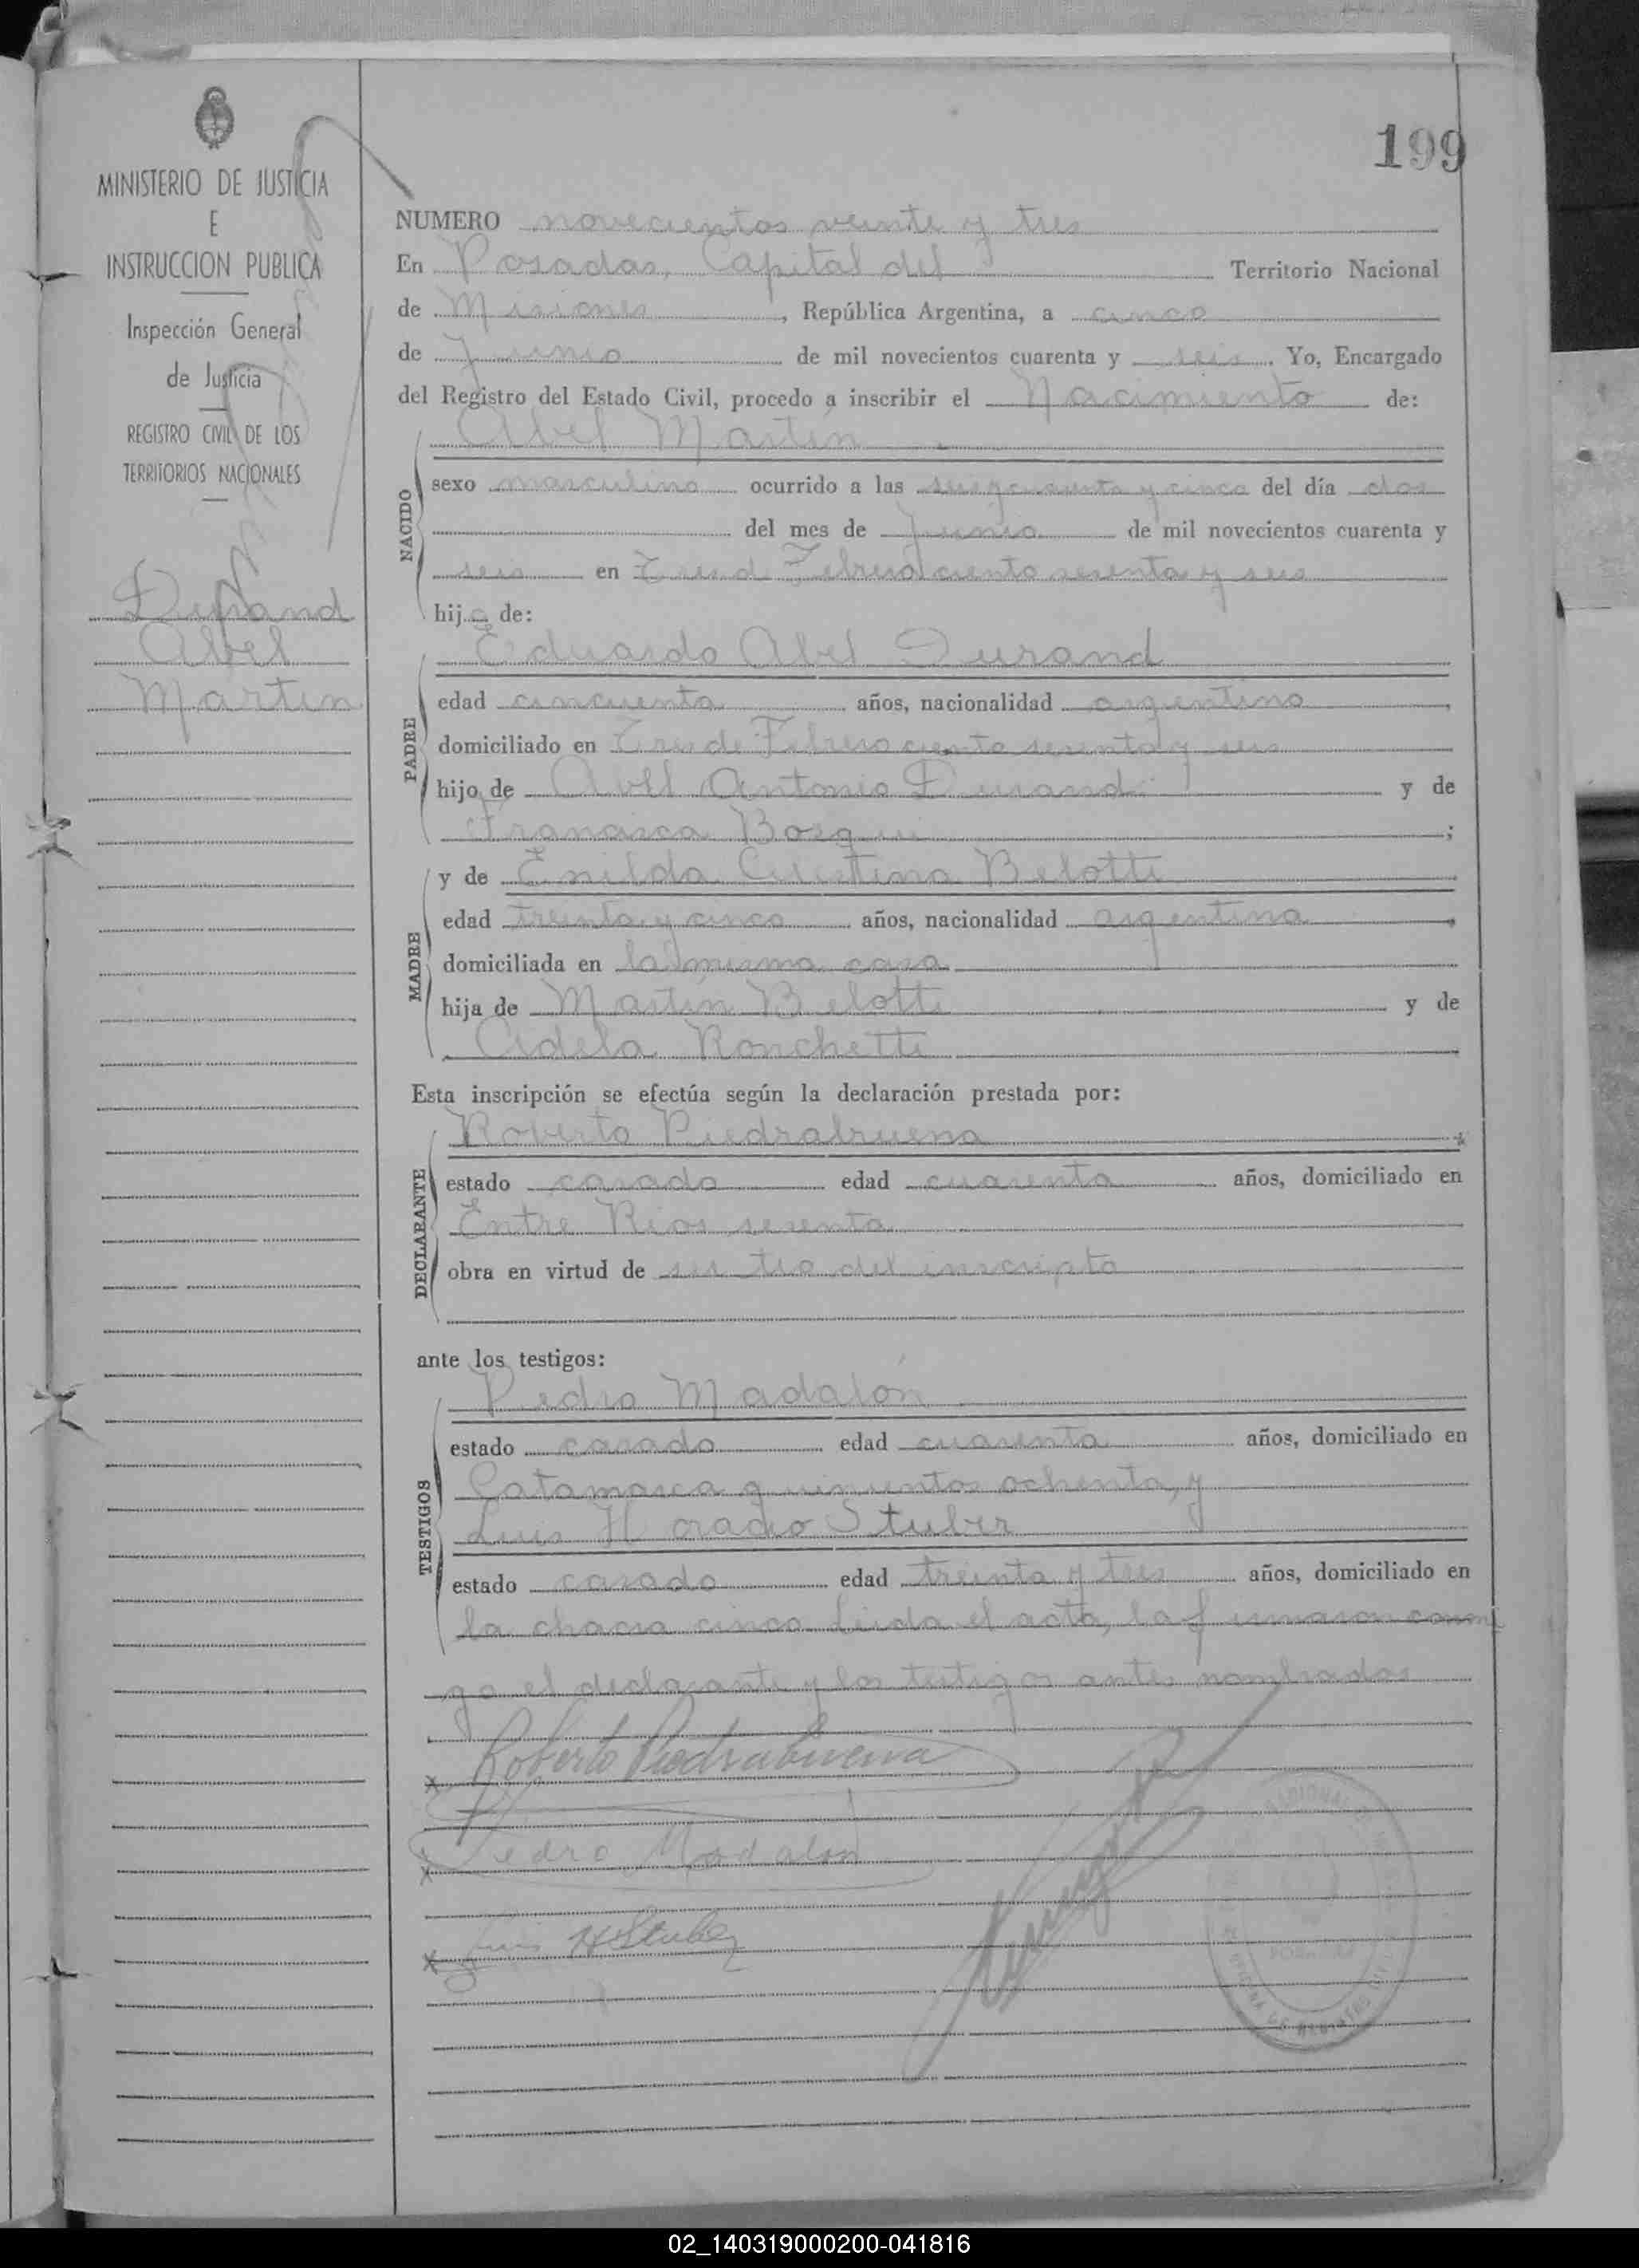 199
MINISTERIO DE JUSTICIA
E
INSTRUCCION PUBLICA
Inspección General
de Justicia
REGISTRO CIVIL DE LOS
TERRITORIOS NACIONALES
Durand
Abel
Martin
NUMERO novecientos veinte y tres
En Posadas, Capital del Territorio Nacional
de Misiones, República Argentina, a cinco
de Junio de mil novecientos cuarenta y seis. Yo, Encargado
del Registro del Estado Civil, procedo a inscribir el Nacimiento de:
Abel Martin
NACIDO
sexo masculino ocurrido a las seis y cuarenta y cinco del día dos
del mes de Junio de mil novecientos cuarenta y
seis en Tres de Febrero ciento sesenta y seis
hijo de:
Eduardo Abel Durand
PADRE
edad cincuenta años, nacionalidad argentino
domiciliado en Tres de Febrero ciento sesenta y seis
hijo de Abel Antonio Durand y de
Francisca Bosqui;
MADRE
y de Enilda Celestina Belotti
edad treinta y cinco años, nacionalidad argentina
domiciliada en la misma casa
hija de Martín Belotti y de
Adela Ronchetti
Esta inscripción se efectúa según la declaración prestada por:
Roberto Piedrabuena
DECLARANTE
estado casado edad cuarenta años, domiciliado en
Entre Rios sesenta
obra en virtud de ser tio del inscripto
ante los testigos:
Pedro Madalón
TESTIGOS
estado casado edad cuarenta años, domiciliado en
Catamarca quinientos ochenta, y
Luis Horacio Stuber
estado casado edad treinta y tres años, domiciliado en
la chacra cinco. Leida el acta, la firmaron conmi
go el declarante y los testigos antes nombrados
Roberto Piedrabuena
Pedro Madalón
Luis H Stuber
02_140319000200-041816